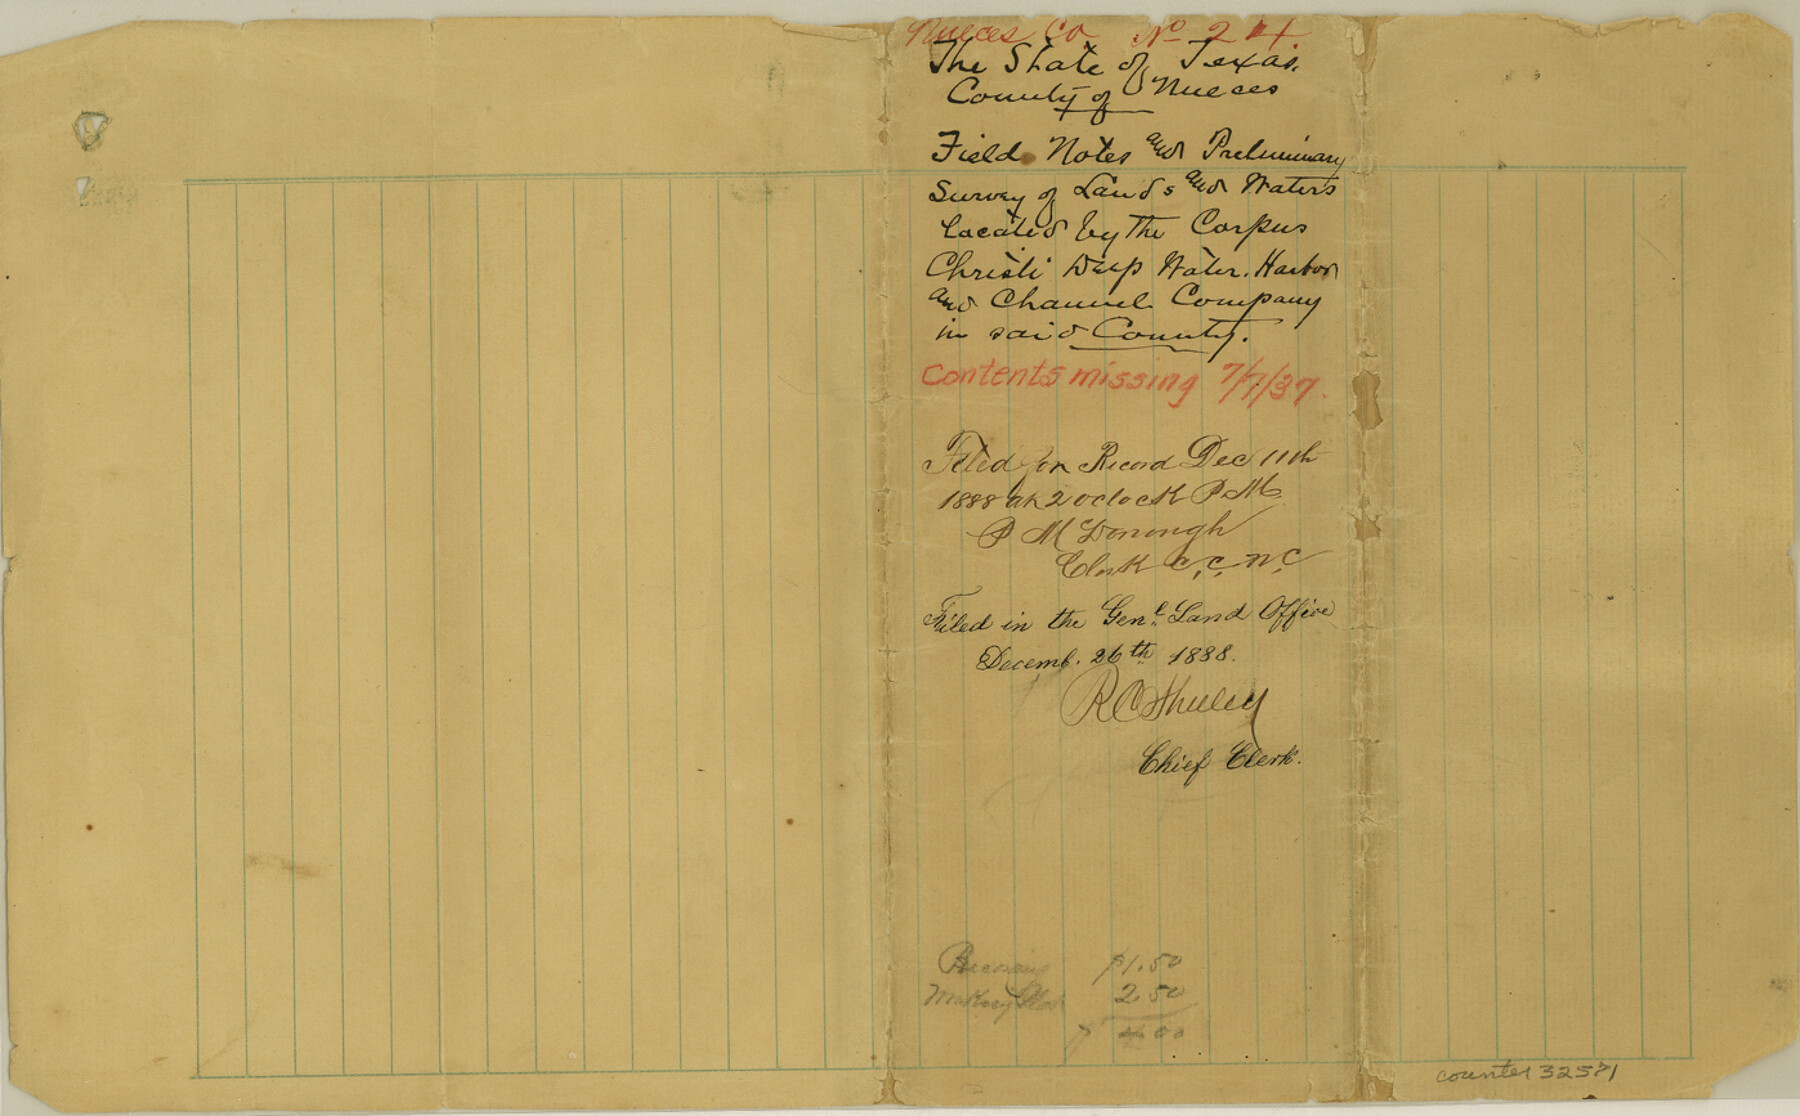 Nueces Co No 24
The State of Texas.
County of Nueces
Field Notes and Preliminary
Survey of Lands and Waters
located by the Corpus
Christi Deep Water. Harbor
and Channel Company
in said County.
Contents missing 7/7/37.
Filed for Record Dec 11th
1888 at 2 oclock P.M.
P McDonough
Clerk C.C.N.C
Filed in the Genl. Land Office
Decemb. 26th 1888.
Chief Clerk.
$1.50
2.50
4.00
counter 32571